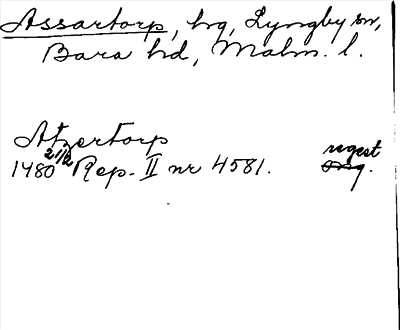 Assartorp, hg, Lyngby sn,
Bara hd, Malm. l.
Atzertorp
1480 21/12 Rep. II nr 4581.
regest